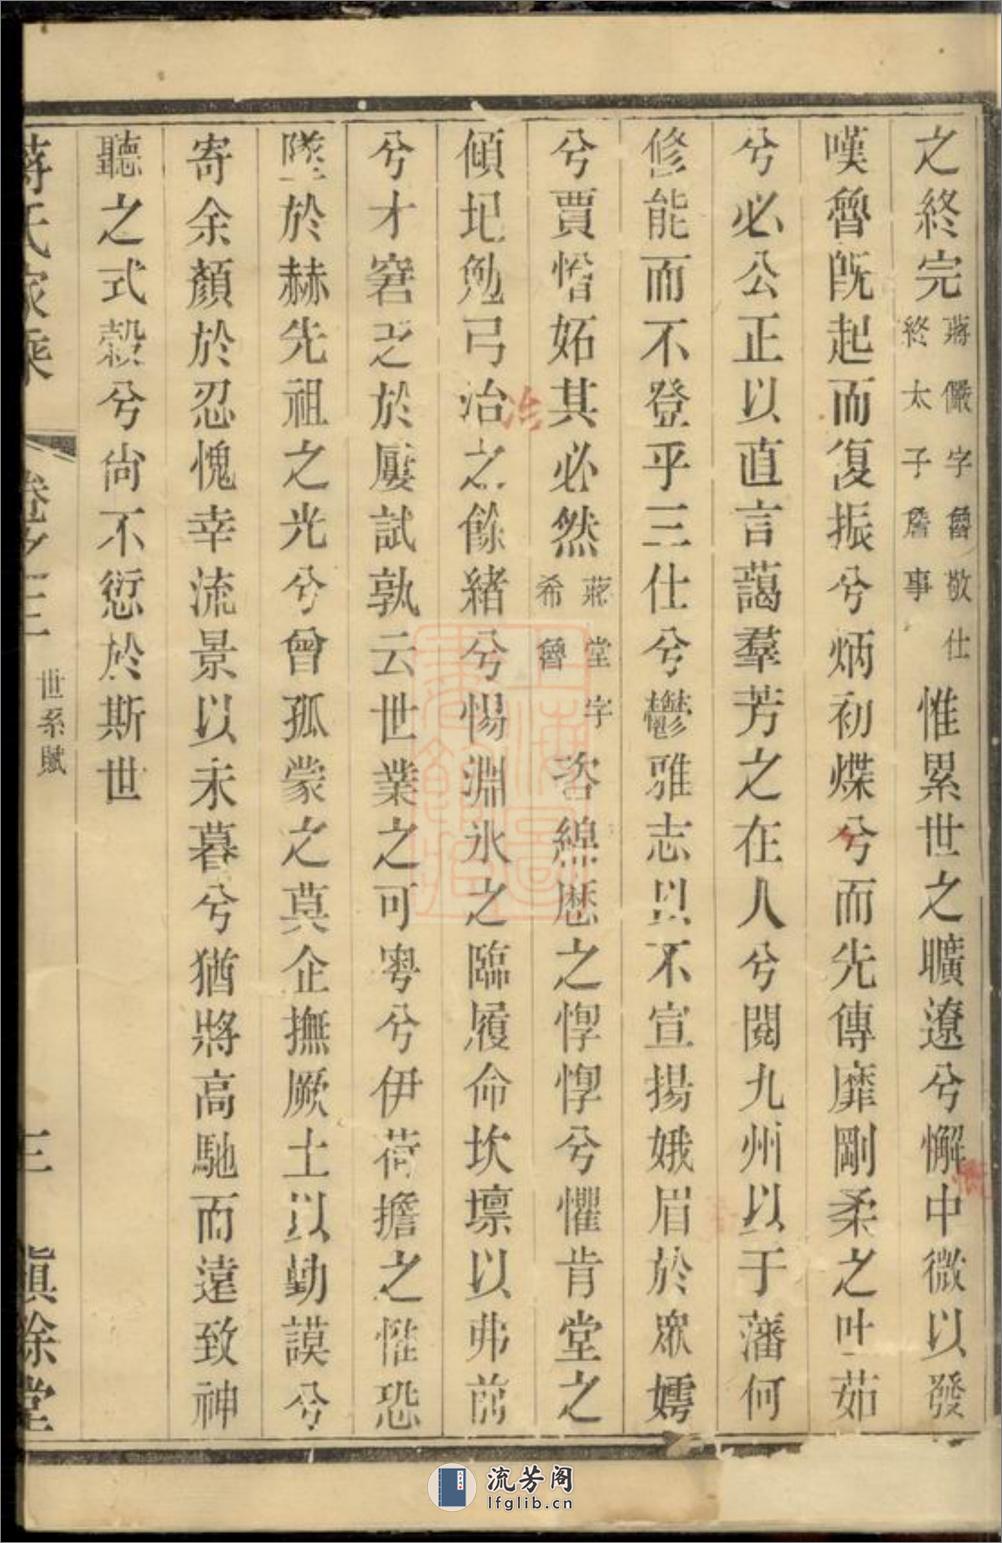 之終完蔣儼字魯敬仕終太子詹事惟累世之曠遼兮懈中微以發
嘆魯旣起而復振兮炳初煠兮而先傳靡剛柔之吐茹
兮必公正以直言藹羣芳之在人兮閱九州以于藩何
修能而不登乎三仕兮鬱雅志且不宣揚娥眉於眾嫮
兮賈㥶妬其必然蔣堂字希魯咨綿歷之惸惸兮懼肯堂之
傾圮勉弓治之餘緒兮惕淵氷之臨履命坎壈以弗前
兮才窘乏於屢試孰云世業之可雩兮伊荷擔之惟恐
墜於赫先祖之光兮曾孤蒙之莫企撫厥土以勤謨兮
寄余顏於忍愧幸流景以未暮兮猶將高馳而遠致神
聽之式穀兮尙不愆於斯世
蔣氏家乘 卷之三 世系賦 三 慎餘堂
冶
流芳阁
lfglib.cn